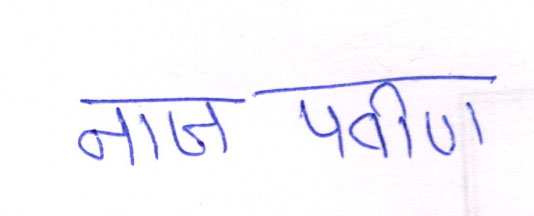 नाज पवीण